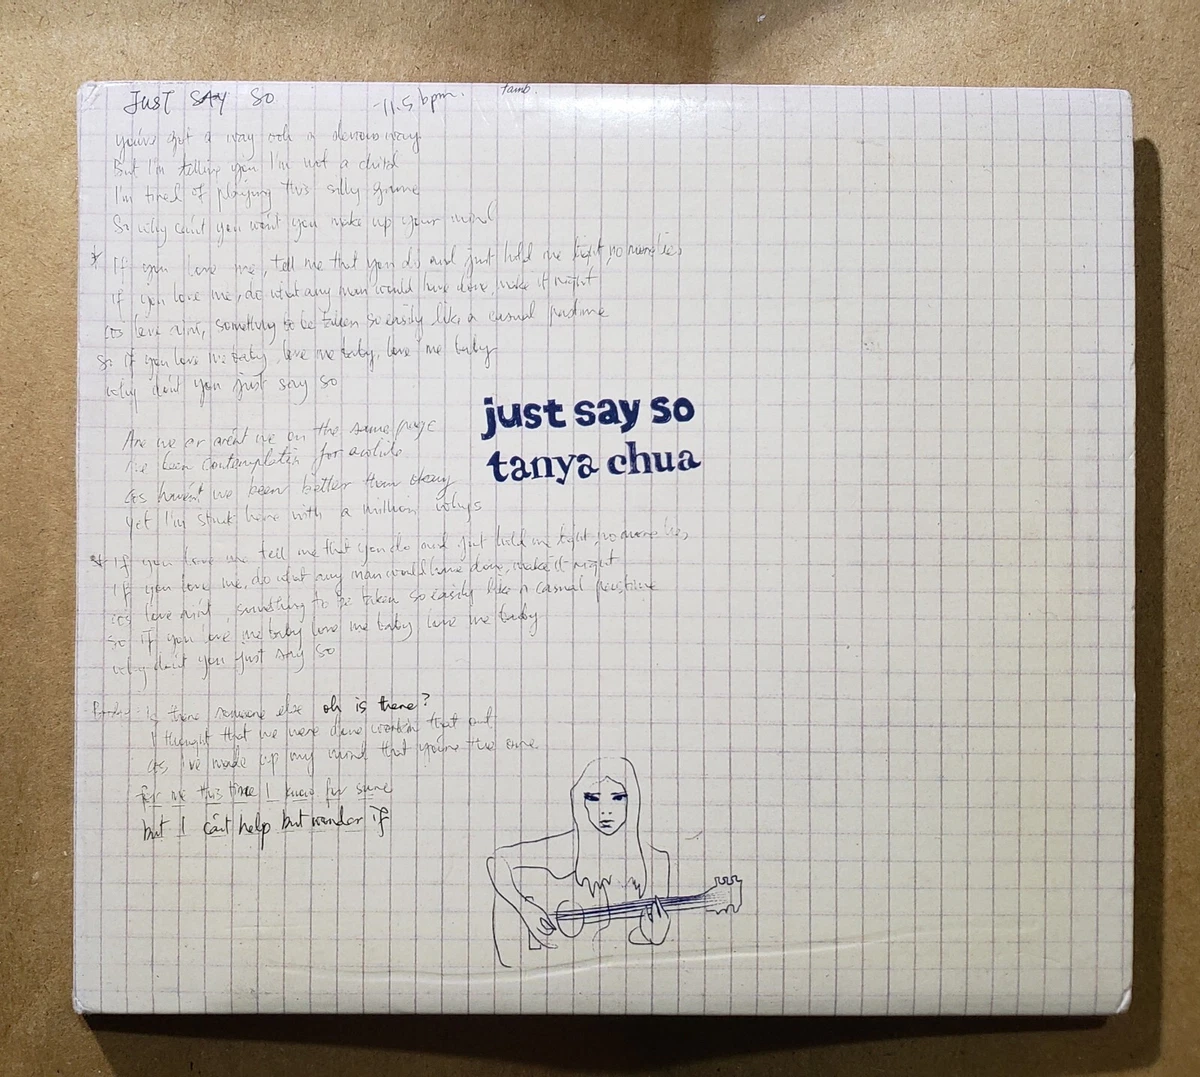 JUST SAY SO
-11.5 bpm.
tamb.
you've got a way ooh a devious way
But I'm telling you I'm not a child
I'm tired of playing this silly game
So why can't you won't you make up your mind
* If you love me, tell me that you do and just hold me tight, no more lies
If you love me, do what any man would have done, make it right
cos love aint, something to be taken so easily like a casual pastime
So if you love me baby, love me baby, love me baby
why don't you just say so
just say so
tanya chua
Are we or aren't we on the same page
I've been contemplatin for awhile
cos haven't we been better than okay
Yet I'm stuck here with a million whys
* If you love me tell me that you do and just hold me tight, no more lies
If you love me, do what any man would have done, make it right
cos love aint, something to be taken so easily like a casual pastime
So if you love me baby love me baby love me baby
why don't you just say so
is there someone else oh is there?
I thought that we were done workin that out
cos I've made up my mind that you're the one
for me this time I know for sure
but I can't help but wonder if